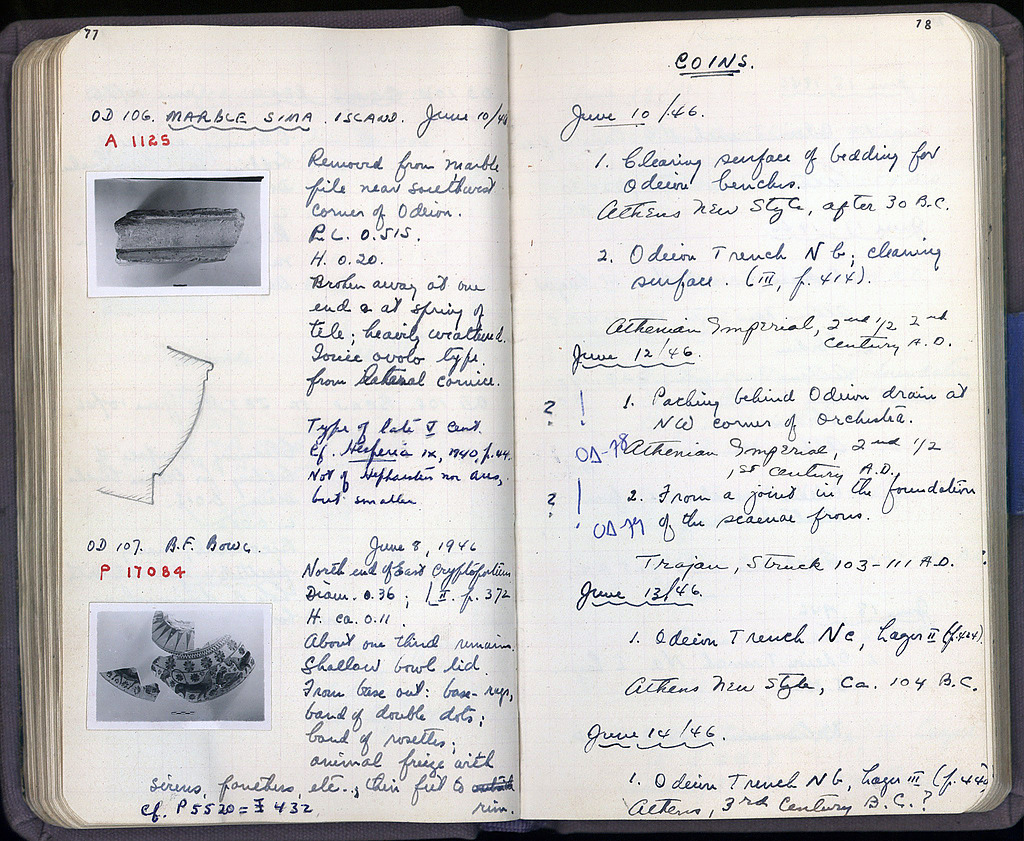 77
OD 106. MARBLE SIMA. ISLAND. June 10/46
A 1125
Removed from marble
pile near southwest
corner of Odeion.
P.L. 0.515.
H. 0.20.
Broken away at one
end & at spring of
tile; heavily weathered.
Ionic ovolo type
from lateral cornice.
Type of late V cent.
Cf. Hesperia IX, 1940, p. 44.
Not of Hephaisteion nor Ares,
but smaller.
OD 107. B.F. Bowl. June 8, 1946
P 17084
North end of East Cryptoporticus
Diam. 0.36; (II. p. 372
H. ca. 0.11.
About one third remains.
Shallow bowl lid.
From base out: base-rays,
band of double dots;
band of rosettes;
animal frieze with
sirens, panthers, etc.,
rim.
Cf. P 5520 = I 432
78
COINS.
June 10/46.
1. Clearing surface of bedding for
Odeion benches.
Athens New Style, after 30 B.C.
2. Odeion Trench N b; cleaning
surface. (III, p. 414).
Athenian Imperial, 2nd 1/2 2nd
century A.D.
June 12/46.
? ! 1. Packing behind Odeion drain at
NW corner of orchestra.
ΟΔ-78 Athenian Imperial, 2nd 1/2
1st century A.D.
? ! 2. From a joint in the foundation
ΟΔ-79 of the scaenae frons.
Trajan, Struck 103-111 A.D.
June 13/46.
1. Odeion Trench N c, Layer II (p. 424)
Athens New Style, Ca. 104 B.C.
June 14/46.
1. Odeion Trench N b, Layer III (p. 440
Athens, 3rd Century B.C.?